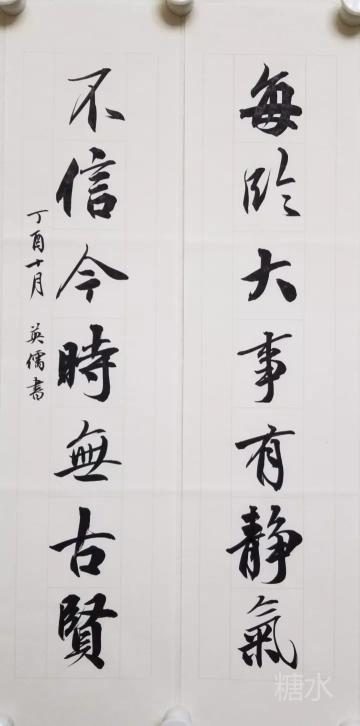 每臨大事有静氣
不信今時無古賢
丁酉十月 英儒書
糖水